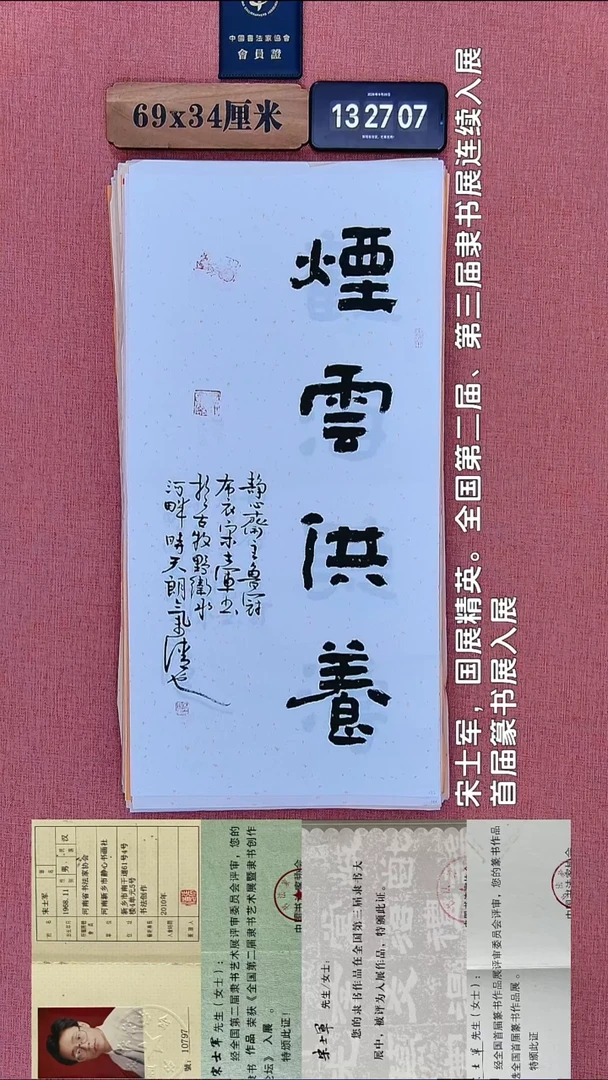 中國書法家協會
會員證
69x34厘米
13 27 07
煙
雲
供
養
靜心齋主魯冠
布衣宋士軍書
於古牧野衛水
河畔時天朗氣清也
宋士军，国展精英。全国第二届、第三届隶书展连续入展
首届篆书展入展
宋士军
男
汉
1968.11
河南省书法家协会
河南新乡市静心书画社
新乡市南干道61号4号
楼4单元5号
书法创作
2010年
號：10797
宋士军 先生（女士）：
经全国第二届隶书艺术展评审委员会评审，您的
隶书 作品 荣获《全国第二届隶书艺术展暨隶书创作
论坛》入展。
特颁此证！
宋士军 先生/女士：
您的隶书作品在全国第三届隶书大
展中，被评为入展作品，特颁此证。
士军 先生（女士）：
经全国首届篆书作品展评审委员会评审，您的篆书作品
选全国首届篆书作品展。
特颁此证